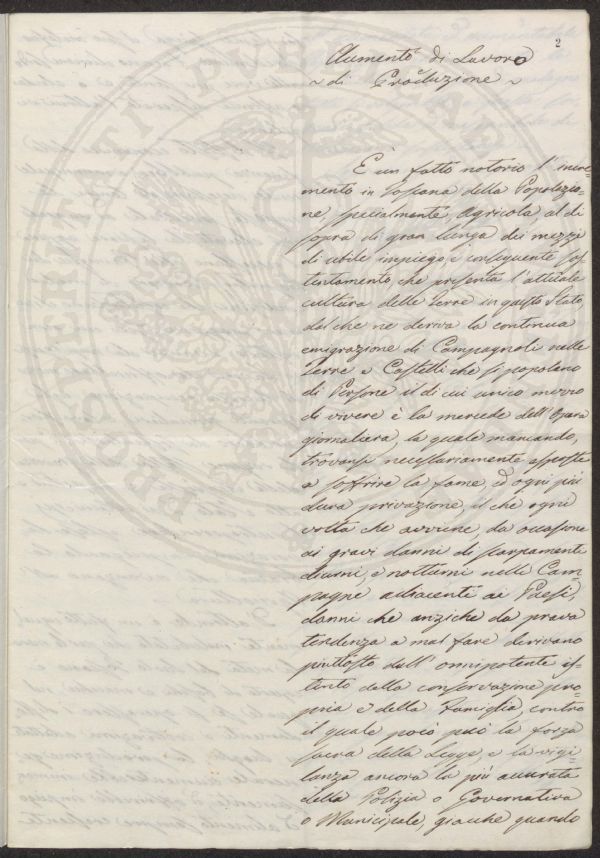 2
Aumento di Lavoro
~ di Produzione ~
È un fatto notorio l'incre=
mento in Toscana della Popolazio=
ne, specialmente Agricola, al di
sopra di gran lunga dei mezzi
di utile impiego, e conseguente sos=
tentamento, che presenta l'attuale
cultura delle Terre in questo Stato,
dal che ne deriva la continua
emigrazione di Campagnoli nelle
Terre e Castelli che si popolano
di Persone il di cui unico mezzo
di vivere è la mercede dell'Opera
giornaliera, la quale mancando,
trovansi necessariamente esposte
a soffrire la fame, ed ogni più
dura privazione, il che ogni
volta che avviene, da occasione
ai gravi danni di
diurni, e notturni nelle Cam=
pagne adiacenti ai Paesi,
danni che anziche da prava
tendenza a mal fare derivano
piuttosto dall'onnipotente is=
tinto della conservazione pro=
pria e della Famiglia, contro
il quale poco può la forza
sacra della Legge, e la vigi=
lanza ancora la più accurata
della Polizia o Governativa
o Municipale, giacche quando
PROPRIETATI PUBLICAE